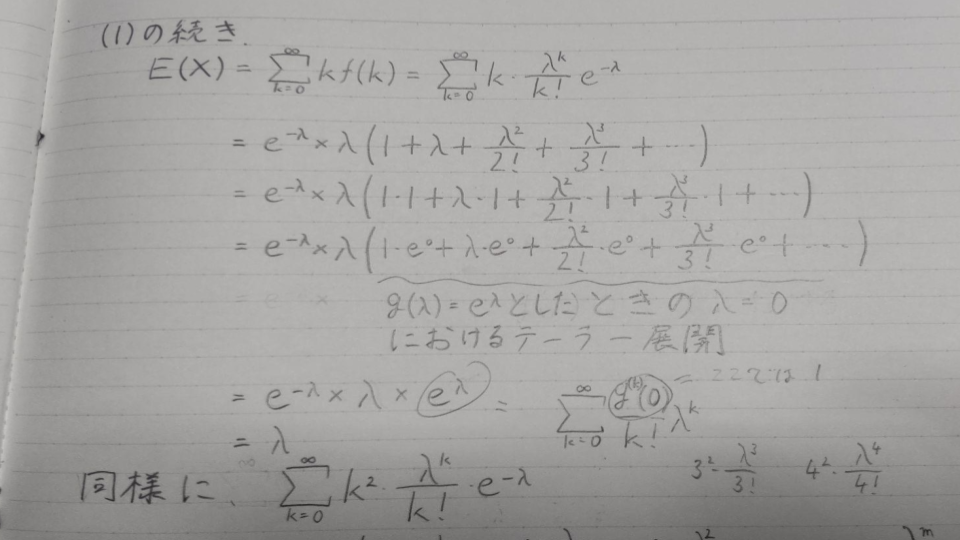 (1)の続き.
E(X) = ∑_{k=0}^{∞} k f(k) = ∑_{k=0}^{∞} k · λ^k/k! e^{-λ}
= e^{-λ} × λ (1 + λ + λ²/2! + λ³/3! + ⋯)
= e^{-λ} × λ (1·1 + λ·1 + λ²/2!·1 + λ³/3!·1 + ⋯)
= e^{-λ} × λ (1·e⁰ + λ·e⁰ + λ²/2!·e⁰ + λ³/3!·e⁰ + ⋯)
g(λ) = e^λ としたときの λ = 0
におけるテーラー展開
= e^{-λ} × λ × e^λ = ∑_{k=0}^{∞} g^{(k)}(0)/k! λ^k = ここでは 1
= λ
同様に、∑_{k=0}^{∞} k² · λ^k/k! · e^{-λ} 3²·λ³/3! 4²·λ⁴/4!